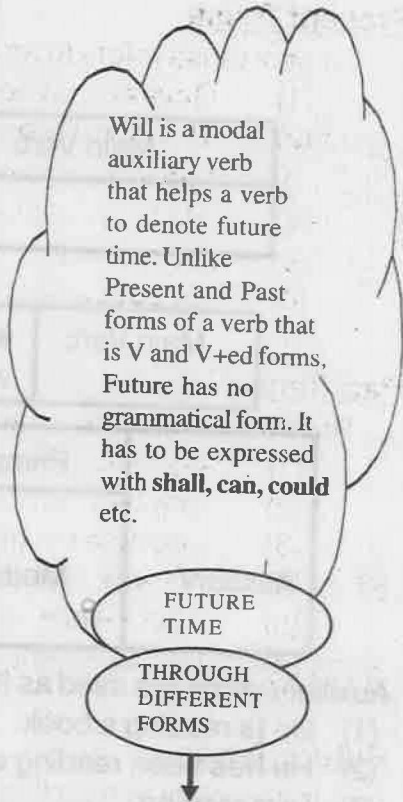 Will is a modal
auxiliary verb
that helps a verb
to denote future
time. Unlike
Present and Past
forms of a verb that
is V and V+ed forms,
Future has no
grammatical form. It
has to be expressed
with shall, can, could
etc.
FUTURE
TIME
THROUGH
DIFFERENT
FORMS